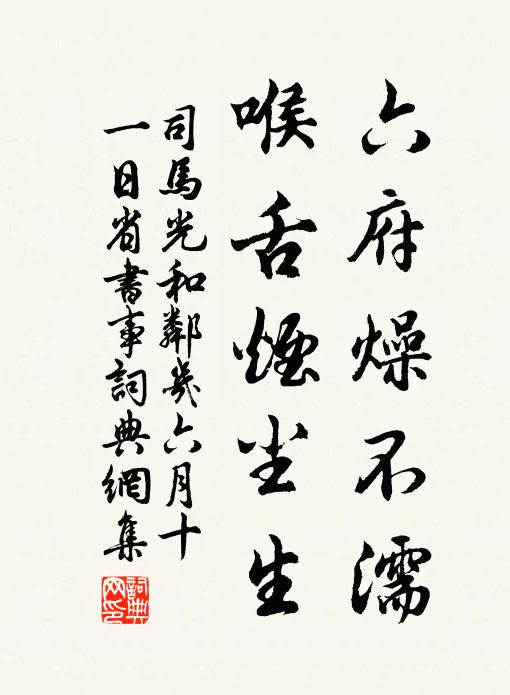 六府燥不濡
喉舌煙尘生
司馬光和鄰幾六月十
一日省書事詞典網集
詞典网印